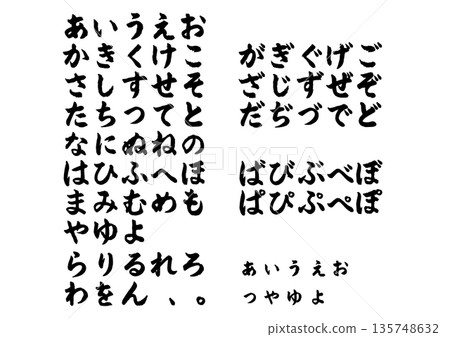 あいうえお
かきくけこ
さしすせそ
たちつてと
なにぬねの
はひふへほ
まみむめも
やゆよ
らりるれろ
わをん、。
がぎぐげご
ざじずぜぞ
だぢづでど
ばびぶべぼ
ぱぴぷぺぽ
あいうえお
つやゆよ
135748632